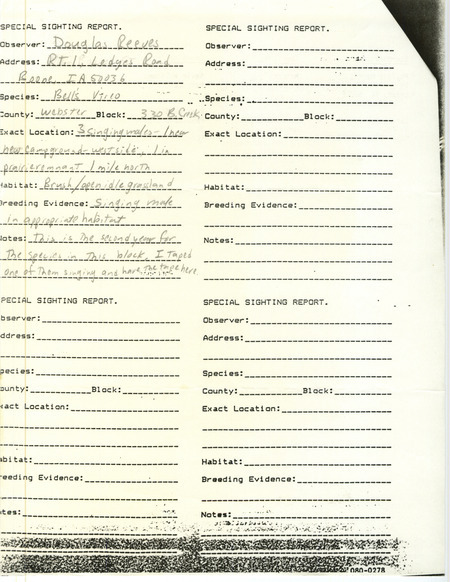 SPECIAL SIGHTING REPORT.
Observer: Douglas Reeves
Address: RT. 1, Ledges Road
Boone IA 50036
Species: Bell's Vireo
County: Webster Block: 330 B. Creek
Exact Location: 3 singing males - 1 near
campground - west side. 1 in
prairie remnant 1 mile north
Habitat: Brush/open idle grassland
Breeding Evidence: Singing male
in appropriate habitat
Notes: This is the second year for
the species in this block. I taped
one of them singing and have the tape here.
SPECIAL SIGHTING REPORT.
Observer:
Address:
Species:
County: Block:
Exact Location:
Habitat:
Breeding Evidence:
Notes:
SPECIAL SIGHTING REPORT.
bserver:
ddress:
pecies:
ounty: Block:
xact Location:
abitat:
reeding Evidence:
otes:
SPECIAL SIGHTING REPORT.
Observer:
Address:
Species:
County: Block:
Exact Location:
Habitat:
Breeding Evidence:
Notes:
080-0278